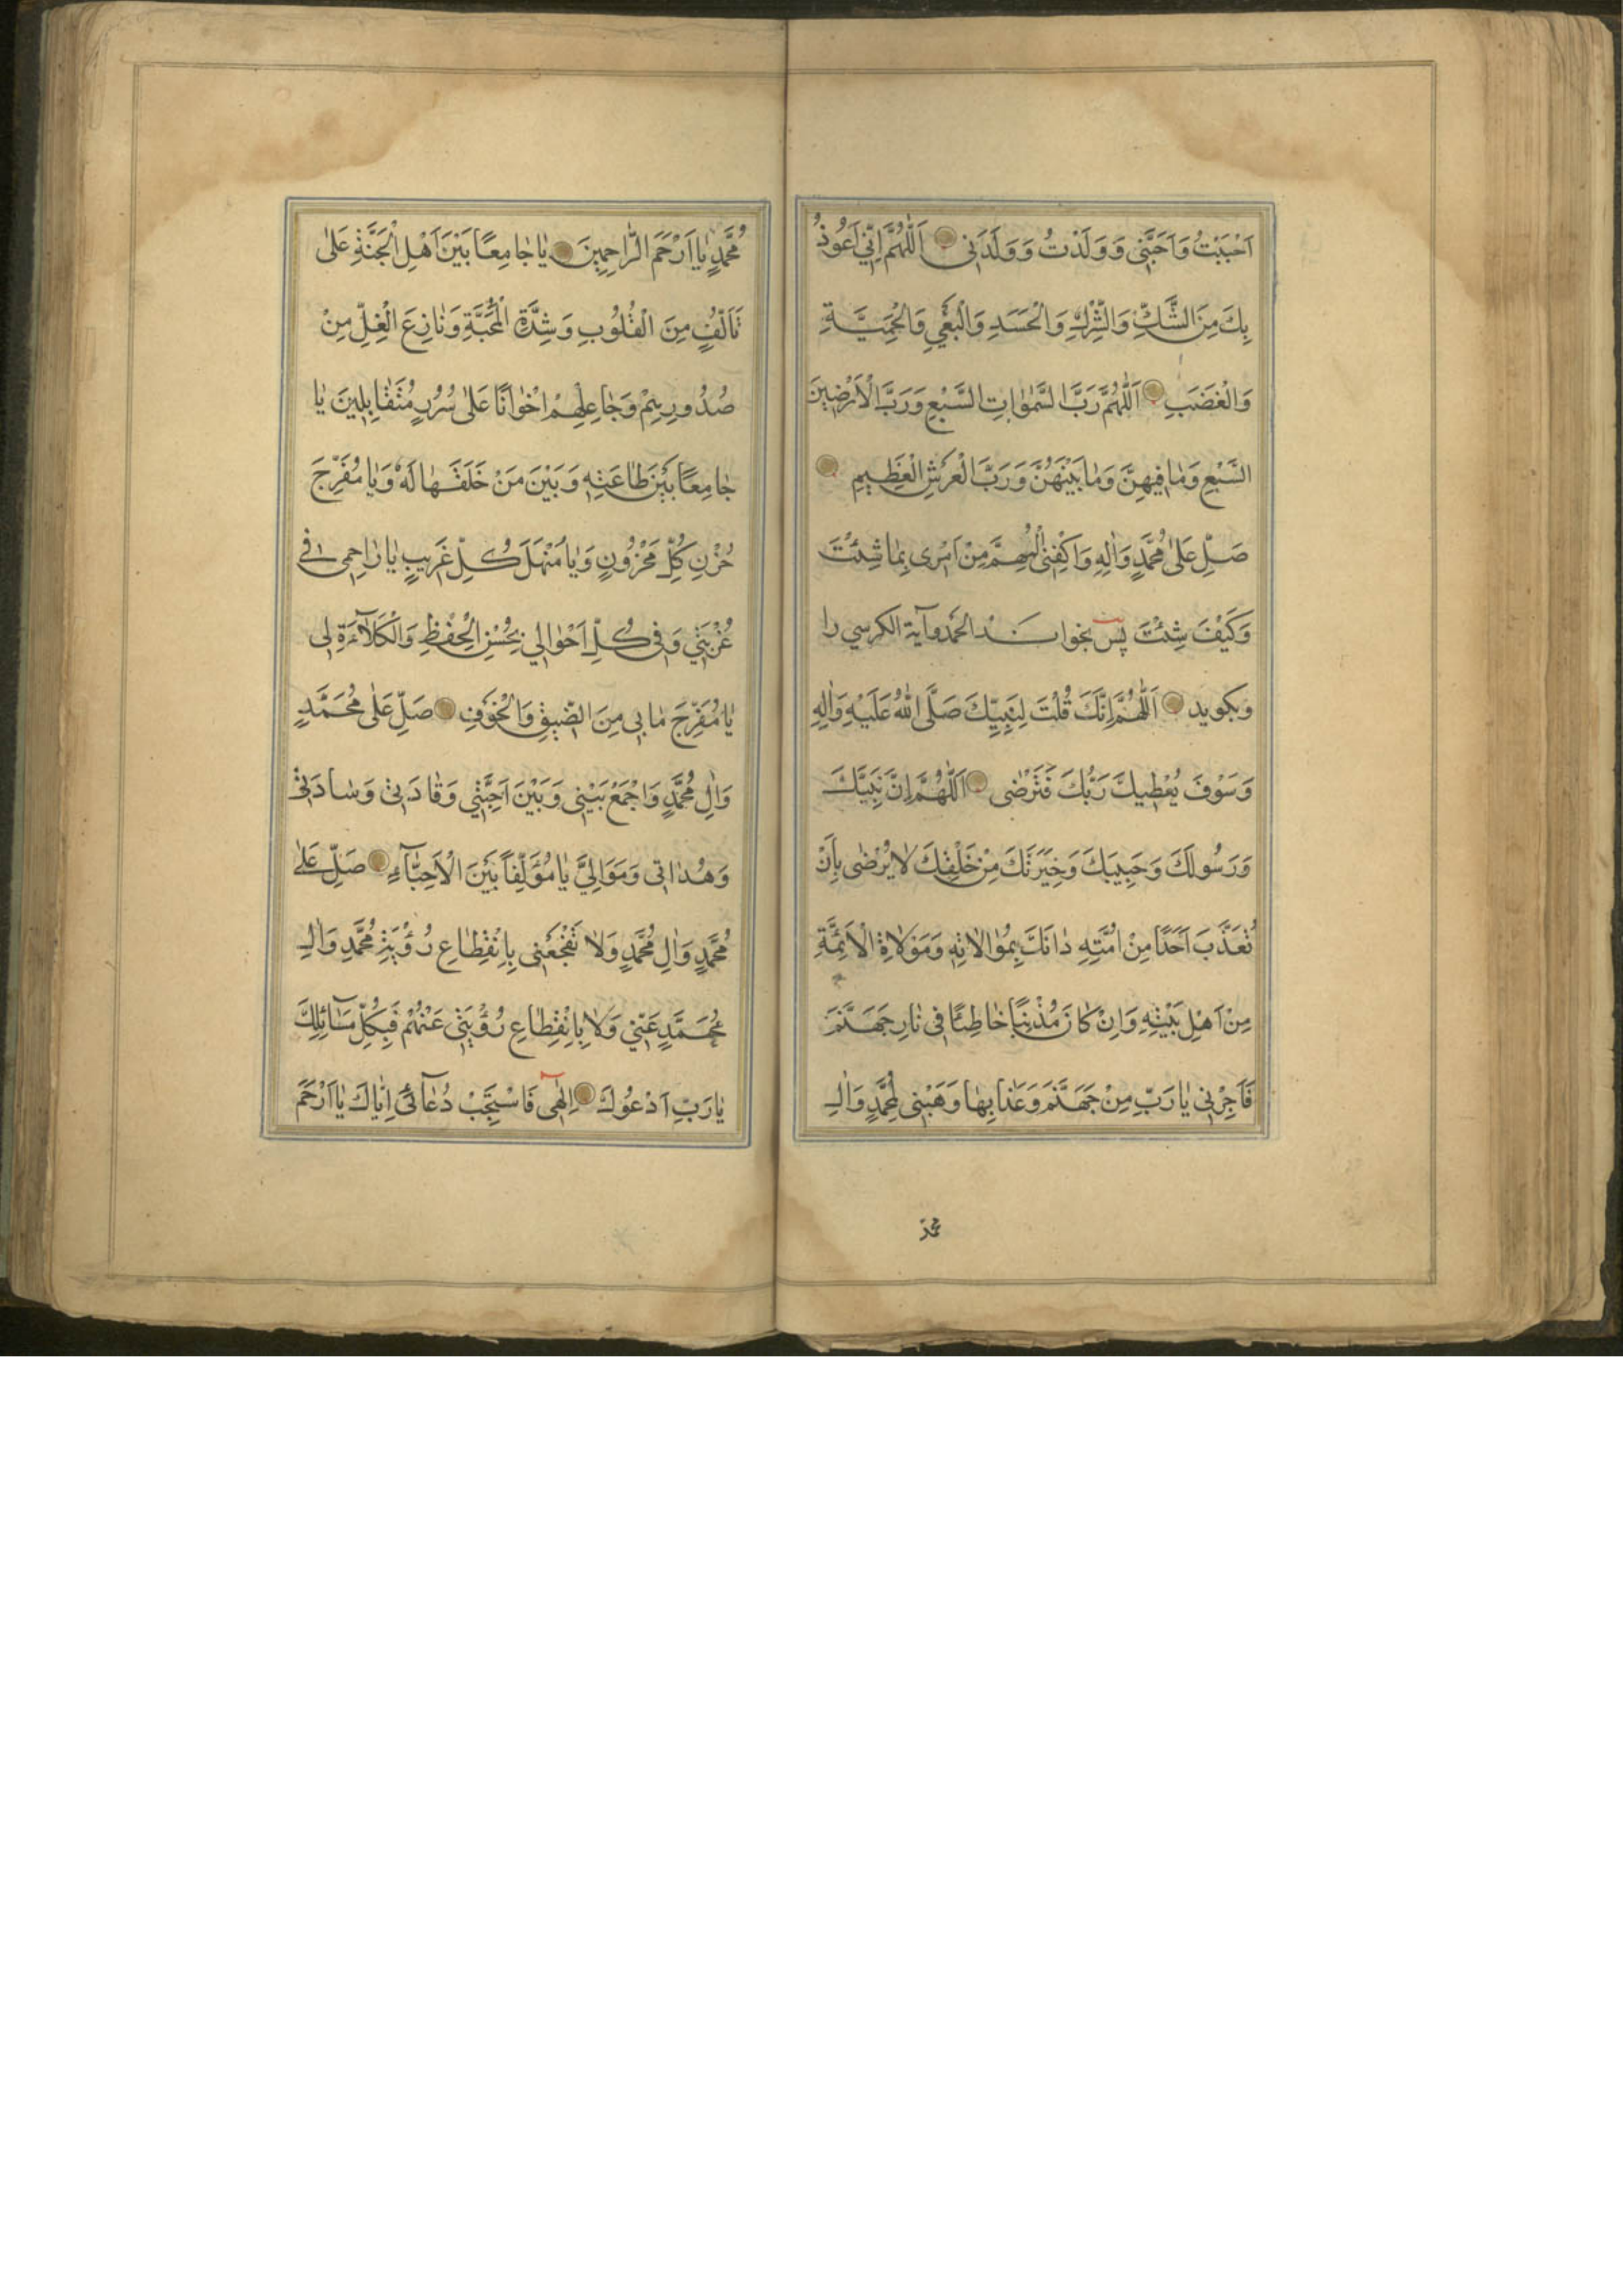 اَحْبَبْتُ وَاَحَبَّنِي وَ وَلَدْتُ وَ وَلَدَنِی اَللّٰهُمَّ اِنِّي اَعُوذُ
بِكَ مِنَ الشَّكِّ وَالشِّرْكِ وَالْحَسَدِ وَالْبَغْيِ وَالْحَمِيَّةِ
وَالْغَضَبِ اَللّٰهُمَّ رَبَّ السَّمٰوَاتِ السَّبْعِ وَرَبَّ الْاَرَضِينَ
السَّبْعِ وَمٰا فِيهِنَّ وَمٰا بَيْنَهُنَّ وَرَبَّ الْعَرْشِ الْعَظِيمِ
صَلِّ عَلىٰ مُحَمَّدٍ وَاٰلِهِ وَاكْفِنِي الْمُهِمَّ مِنْ اَمْرِى بِمٰا شِئْتَ
وَكَيْفَ شِئْتَ پس بخوانند الحمد و آية الكرسي را
وبگويد اَللّٰهُمَّ اِنَّكَ قُلْتَ لِنَبِيِّكَ صَلَّى اللّٰهُ عَلَيْهِ وَاٰلِهِ
وَسَوْفَ يُعْطِيكَ رَبُّكَ فَتَرْضٰى اَللّٰهُمَّ اِنَّ نَبِيَّكَ
وَرَسُولَكَ وَحَبِيبَكَ وَخِيَرَتَكَ مِنْ خَلْقِكَ لاٰ يَرْضٰى بِاَنْ
تُعَذِّبَ اَحَدًا مِنْ اُمَّتِهِ دٰانَكَ بِمُوٰالاٰتِهِ وَمُوَلاٰةِ الْاَئِمَّةِ
مِنْ اَهْلِ بَيْتِهِ وَاِنْ كٰانَ مُذْنِبًا خٰاطِئًا فِى نٰارِ جَهَنَّمَ
فَاَجِرْنِى يٰا رَبِّ مِنْ جَهَنَّمَ وَعَذٰابِهٰا وَهَبْنِى لِمُحَمَّدٍ وَاٰلِ
محمد
مُحَمَّدٍ يٰا اَرْحَمَ الرّٰاحِمِينَ يٰا جٰامِعًا بَيْنَ اَهْلِ الْجَنَّةِ عَلىٰ
تَاَلُّفٍ مِنَ الْقُلُوبِ وَشِدَّةِ الْمَحَبَّةِ وَنٰازِعَ الْغِلِّ مِنْ
صُدُورِهِمْ وَجٰاعِلَهُمْ اِخْوٰانًا عَلىٰ سُرُرٍ مُتَقٰابِلِينَ يٰا
جٰامِعًا بَيْنَ طٰاعَتِهِ وَبَيْنَ مَنْ خَلَقَهٰا لَهُ وَيٰا مُفَرِّجَ
حُزْنِ كُلِّ مَحْزُونٍ وَيٰا مَنْهَلَ كُلِّ غَرِيبٍ يٰا رٰاحِمِى فِي
غُرْبَتِي وَفِى كُلِّ اَحْوٰالِي بِحُسْنِ الْحِفْظِ وَالْكَلاٰءَةِ لِى
يٰا مُفَرِّجَ مٰا بِى مِنَ الضِّيقِ وَالْخَوْفِ صَلِّ عَلىٰ مُحَمَّدٍ
وَاٰلِ مُحَمَّدٍ وَاجْمَعْ بَيْنِى وَبَيْنَ اَحِبَّتِي وَقٰادَتِي وَسٰادَتِي
وَهُدٰاتِى وَمَوَالِيَّ يٰا مُؤَلِّفًا بَيْنَ الْاَحِبّٰآءِ صَلِّ عَلىٰ
مُحَمَّدٍ وَاٰلِ مُحَمَّدٍ وَلاٰ تَفْجَعْنِى بِاِنْقِطٰاعِ رُؤْيَةِ مُحَمَّدٍ وَاٰلِ
مُحَمَّدٍ عَنِّي وَلاٰ بِاِنْقِطٰاعِ رُؤْيَتِي عَنْهُمْ فَبِكُلِّ مَسٰآئِلِكَ
يٰا رَبِّ اَدْعُوكَ اِلٰهِى فَاسْتَجِبْ دُعٰآئِي اِيّٰاكَ يٰا اَرْحَمَ